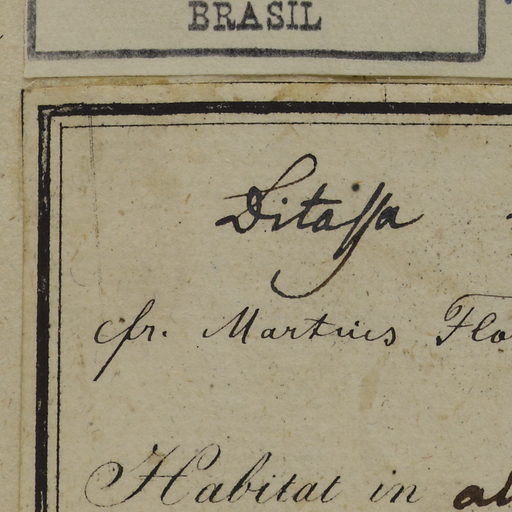 BRASIL
Ditassa
cfr. Martius Flo
Habitat in al